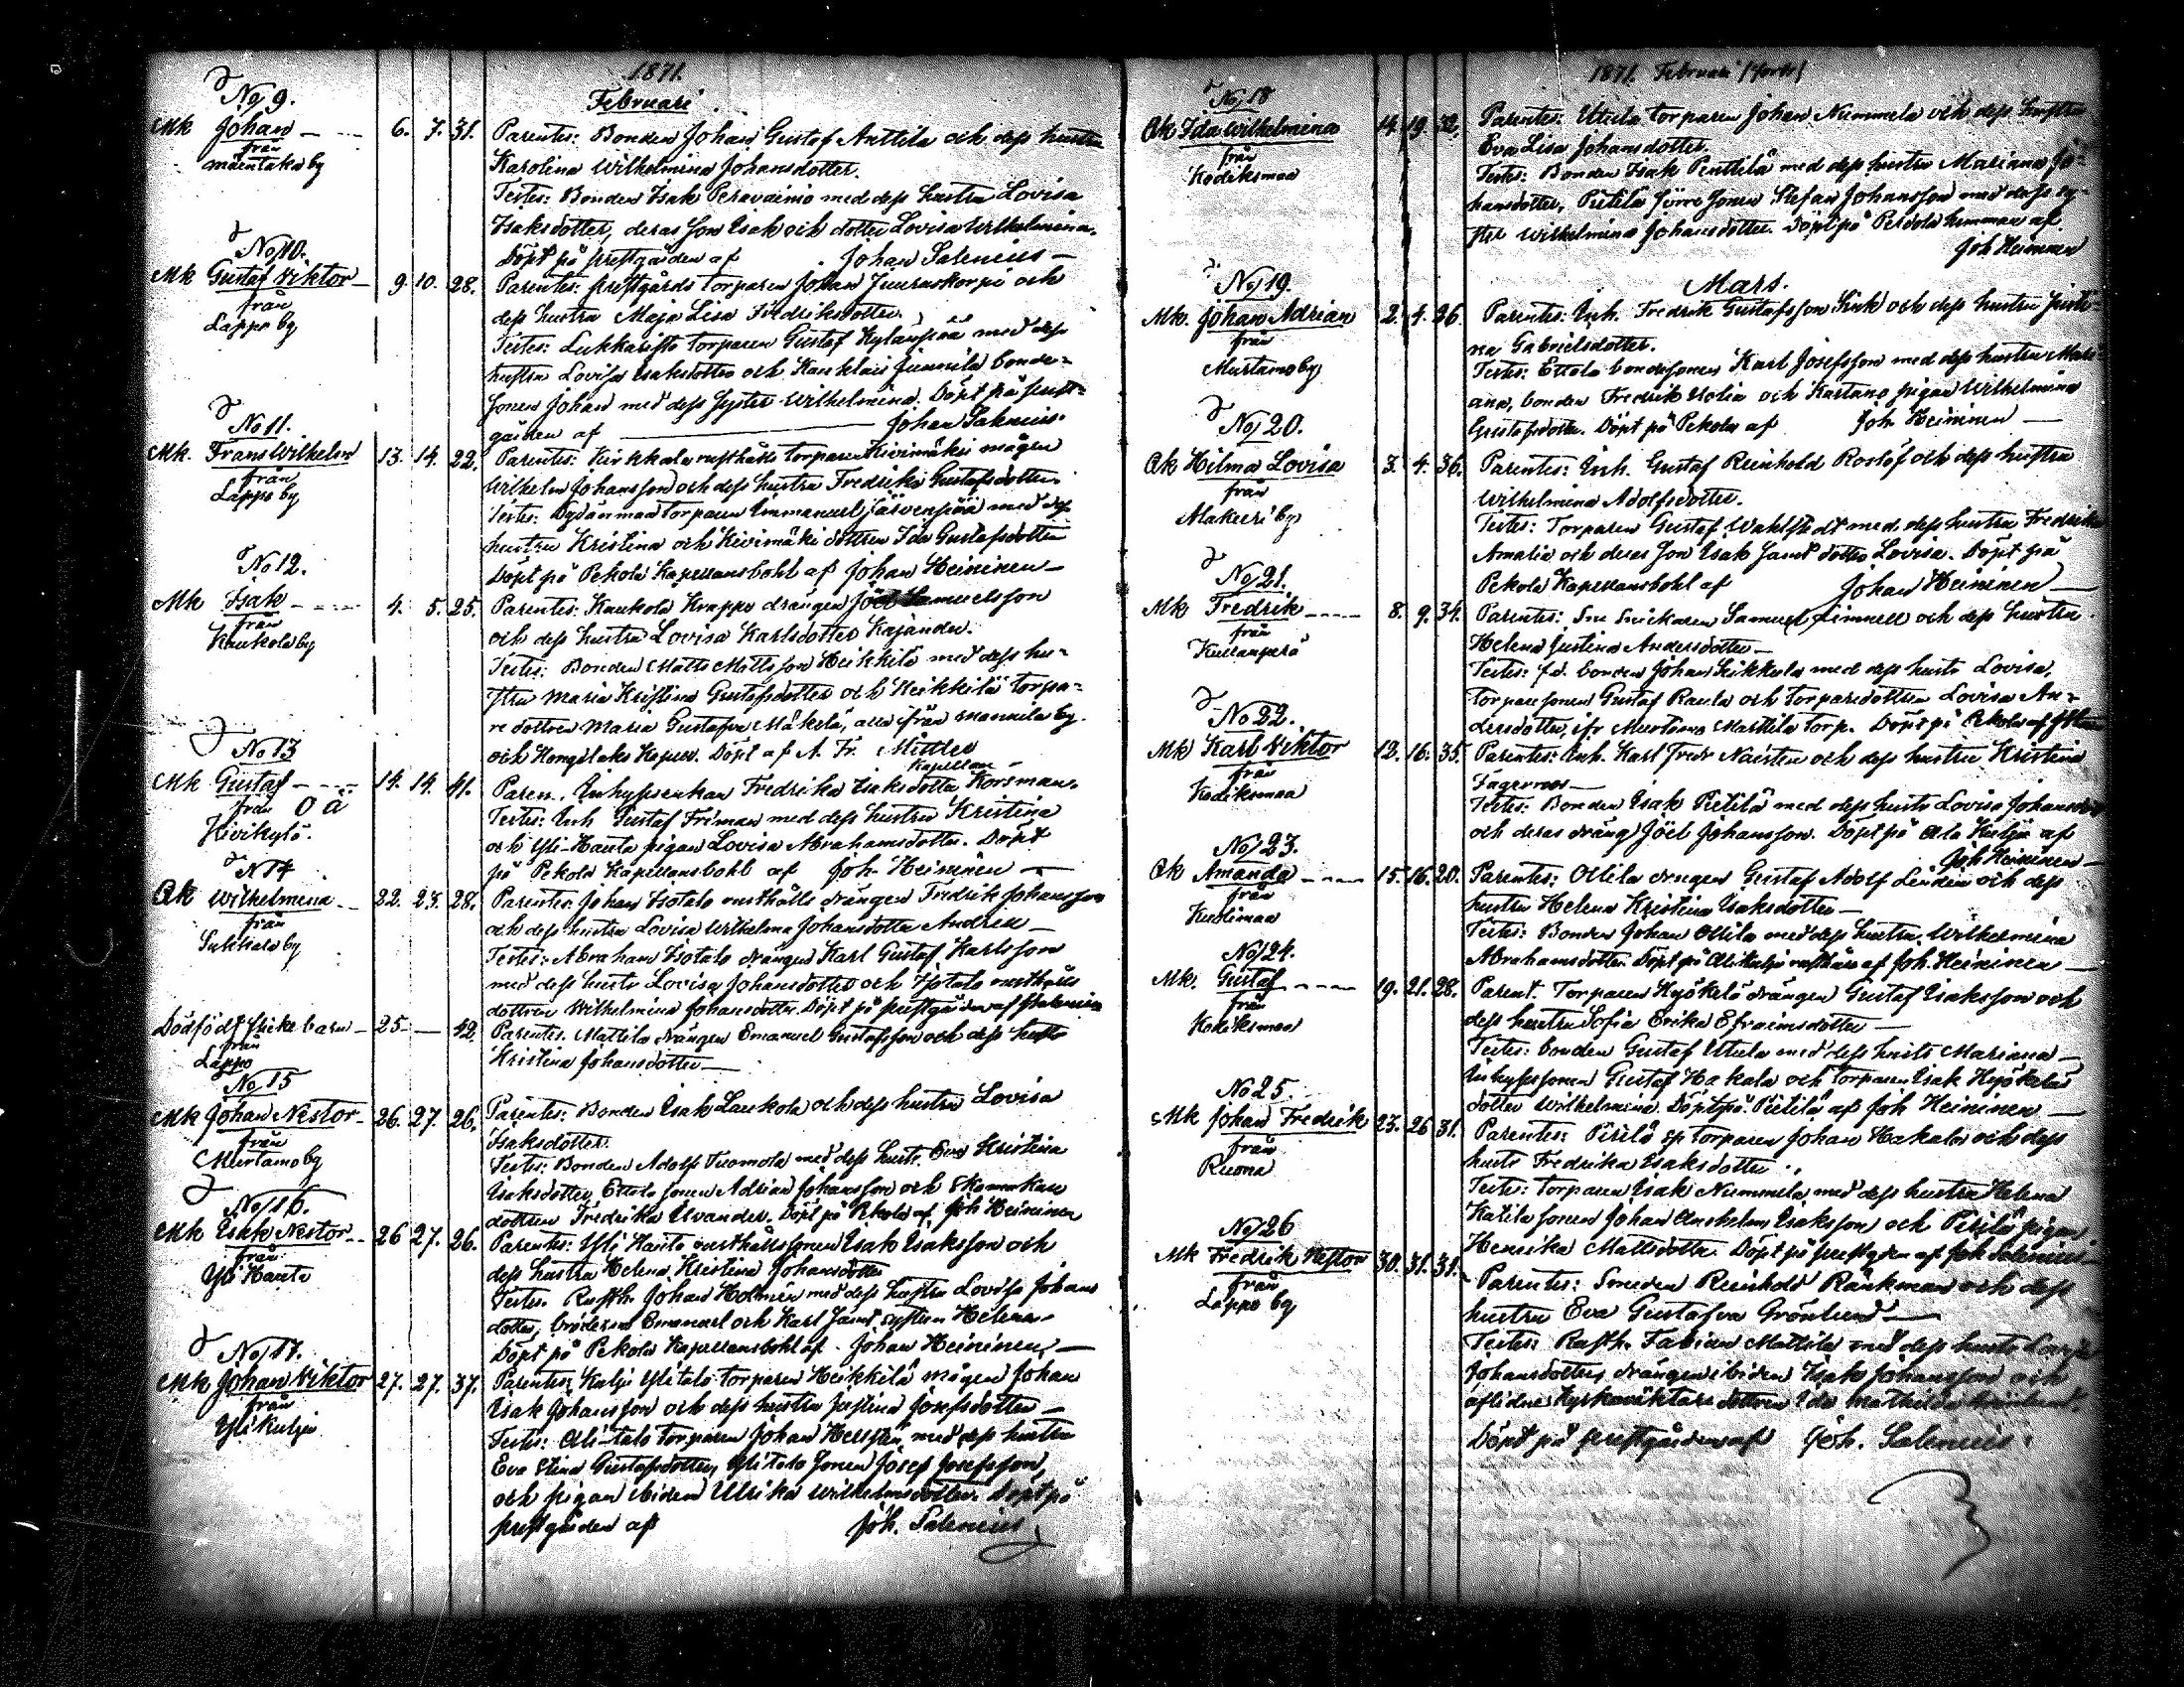 1871.
Februari.
No 9.
Mk Johan 6. 7. 31.
från
Mäentaka by
Parentes: Bonden Johan Gustaf Anttila och dess hustru
Karolina Wilhelmina Johansdotter.
Testes: Bonden Isak Peravainio med dess hustru Lovisa
Isaksdotter, deras son Isak och dotter Lovisa Wilhelmina.
Döpt på prestgården af Johan Salenius
No 10.
Mk Gustaf Viktor 9. 10. 28.
från
Lappo by
Parentes: prestgårds torparen Johan Juuraskorpi och
dess hustru Maja Lisa Fredriksdotter.
Testes: Lukkaristo torparen Gustaf Kylänpää med dess
hustru Lovisa Isaksdotter och Kauklais Junnila bonde-
sonen Johan med dess syster Wilhelmina. Döpt på prest-
gården af Johan Salenius.
No 11.
Mk. Frans Wilhelm 13. 14. 22.
från
Lappo by
Parentes: Kirkkala rusthålls torparen Kivimäki mågen
Wilhelm Johansson och dess hustru Fredrika Gustafsdotter.
Testes: torparen Emmanuel Järvenpää med dess
hustru Kristina och Kivimäki dottren Ida Gustafsdotter
Döpt på Pekola Kapellansbohl af Johan Heininen
No 12.
Mk Isak 4. 5. 25.
från
Kaukola by
Parentes: Kaukola Krappo drängen Joel Samuelsson
och dess hustru Lovisa Karlsdotter Kajander.
Testes: Bonden Matts Mattsson Heikkilä med dess hu-
stru Maria Kristina Gustafsdotter och Heikkilä torpa-
re dottren Maria Gustafva Mäkelä, alla ifrån Mannila by
och Hongilaks Kapell. Döpt af A. Fr. Mittler
Kapellan
No 13
Mk Gustaf 14. 14. 41.
från O ä
Kivikylä.
Paren. Inhysenkan Fredrika Isaksdotter Korsman.
Testes: Inh Gustaf Friman med dess hustru Kristina
och Yli-Hauta pigan Lovisa Abrahamsdotter. Döpt
på Pekola Kapellansbohl af Joh. Heininen
N 14
Qk Wilhelmina 22. 23. 28.
från
Sukkala by
Parentes: Johan Isotalo rusthålls drängen Fredrik Johansson
och dess hustru Lovisa Wilhelmina Johansdotter Andren
Testes: Abraham Isotalo drängen Karl Gustaf Karlsson
med dess hustr Lovisa Johansdotter och Isotalo rusthålls
dottren Wilhelmina Johansdotter. Döpt på prestgården af JSalenius
Dödfödt flickebarn 25. — 42.
från
Lappo
Parentes. Mattila drängen Emanuel Gustafsson och dess hustr
Kristina Johansdotter
No 15
Mk Johan Nestor 26. 27. 26.
från
Murtamo by
Parentes: Bonden Isak Laukola och dess hustru Lovisa
Isaksdotter.
Testes: Bonden Adolf Tuomola med dess hustr. Eva Kristina
Isaksdotter, Ettala sonen Adrian Johansson och Skomakare
dottren Fredrika Elvander. Döpt på Pekola af Joh Heininen
No 16.
Mk Isak Nestor 26 27. 26.
från
Yli Hauta
Parentes: Yli Hauta rusthållssonen Isak Isaksson och
dess hustru Helena Kristina Johansdotter
Testes. Rusth. Johan Holmén med dess hustru Lovisa Johans
dotter, bröderne Emanuel och Karl Jämt systern Helena.
Döpt på Pekola Kapellansbohl af Johan Heininen.
No 17.
Mk Johan Viktor 27. 27. 37.
från
Yli Kulju
Parentes: Kulju Ylitalo torparen Heikkilä mågen Johan
Isak Johansson och dess hustru Justina Josefsdotter
Testes: Alitalo torparen Johan Hellsten med dess hustru
Eva Stina Gustafsdotter, Ylitalo sonen Josef Josefsson,
och pigan ibidem Ulrika Wilhelmsdotter. Döpt på
prestgården af Joh. Salenius
1871. Februari (forts)
No 18
Qk Ida Wilhelmina 14. 19. 32.
från
Kodiksmaa
Parentes: Utula torparen Johan Nummela och dess hustru
Eva Lisa Johansdotter.
Testes: Bonden Isak Penttilä med dess hustru Mariana Jo-
hansdotter, Pietilä sonen Stefan Johansson med dess sy-
ster Wilhelmina Johansdotter. Döpt på hemman af
Joh Heininen
Mars.
No 19.
Mk. Johan Adrian 2. 4. 26.
från
Murtamo by
Parentes: Inh. Fredrik Gustafsson Sink och dess hustru Justi-
na Gabrielsdotter.
Testes: Ettala bondesonen Karl Josefsson med dess hustru Mari-
ana, bonden Fredrik Uotia och Kartano pigan Wilhelmina
Gustafsdotter. Döpt på Pekola af Joh Heininen
No 20.
Qk Hilma Lovisa 3. 4. 36.
från
Makeeri by
Parentes: Inh. Gustaf Reinhold Roslöf och dess hustru
Wilhelmina Adolfsdotter.
Testes: Torparen Gustaf Wahlstedt med dess hustru Fredrika
Amalia och deras son Isak samt dotter Lovisa. Döpt på
Pekola Kapellansbohl af Johan Heininen
No 21.
Mk Fredrik 8. 9. 34.
från
Kuilanperä
Parentes: Snickaren Samuel Limnell och dess hustru
Helena Justina Andersdotter
Testes: fd. bonden Johan Sikkala med dess hustr Lovisa,
torparesonen Gustaf Raula och torparedottren Lovisa An-
dersdotter, ifr Murtamo Marttila torp. Döpt på Pekola af JHn
No 22.
Mk Karl Viktor 12. 16. 35.
från
Kodiksmaa
Parentes: Inh. Karl Fredr Naisten och dess hustru Kristina
Fagerroos
Testes: Bonden Isak Pietilä med dess hustr Lovisa Johansdotter
och deras dräng Joel Johansson. Döpt på Ala Kulju af
Joh Heininen
No 23.
Qk Amanda 15. 16. 20.
från
Kuulimaa
Parentes: Ollila drengen Gustaf Adolf Lindén och dess
hustru Helena Kristina Isaksdotter
Testes: Bonden Johan Ollila med dess hustru Wilhelmina
Abrahamsdotter. Döpt på Alikulju rusthåll af Joh. Heininen
No 24.
Mk. Gustaf 19. 21. 28.
från
Kodiksmaa
Parent. Torparen Kyökelä drängen Gustaf Isaksson och
dess hustru Sofia Erika Efraimsdotter
Testes: bonden Gustaf Utula med dess hustr Mariana
Inhysessonen Gustaf Hakala och torparen Isak Kyökelä
dotter Wilhelmina. Döpt på Pietilä af Joh Heininen
No 25.
Mk Johan Fredrik 23. 26. 31.
från
Ruona
Parentes: Pirilä sp torparen Johan Hakala och dess
hustr Fredrika Isaksdotter
Testes: torparen Isak Nummela med dess hustru Helena
Katila sonen Johan Anshelm Isaksson och Pirilä pigan
Henrika Mattsdotter. Döpt på prestgården af Joh Salenius
No 26
Mk Fredrik Nestor 30. 31. 31.
från
Lappo by
Parentes: Smeden Reinhold Ränkman och dess
hustru Eva Gustafva Grönlund
Testes: Rusth. Fabian Mattila med dess hustr Lovisa
Johansdotter, drängen ibidem Isak Johansson och
aflidne Kyrkoväktare dottren Ida Mathilda Grönlund.
Döpt på prestgården af Joh. Salenius.